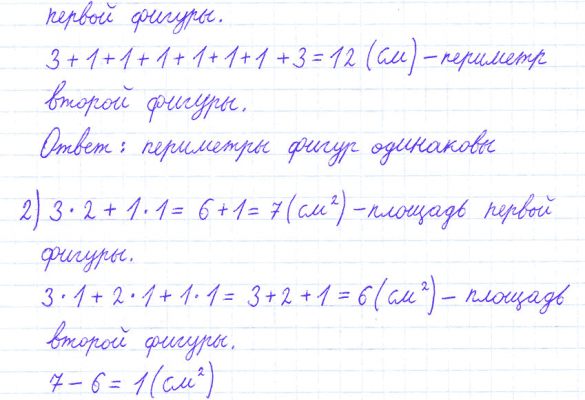 первой фигуры.
3+1+1+1+1+1+1+3=12 (см) – периметр
второй фигуры.
Ответ: периметры фигур одинаковы
2) 3·2+1·1= 6+1= 7(см²) – площадь первой
фигуры.
3·1+2·1+1·1= 3+2+1=6(см²) – площадь
второй фигуры.
7-6=1(см²)